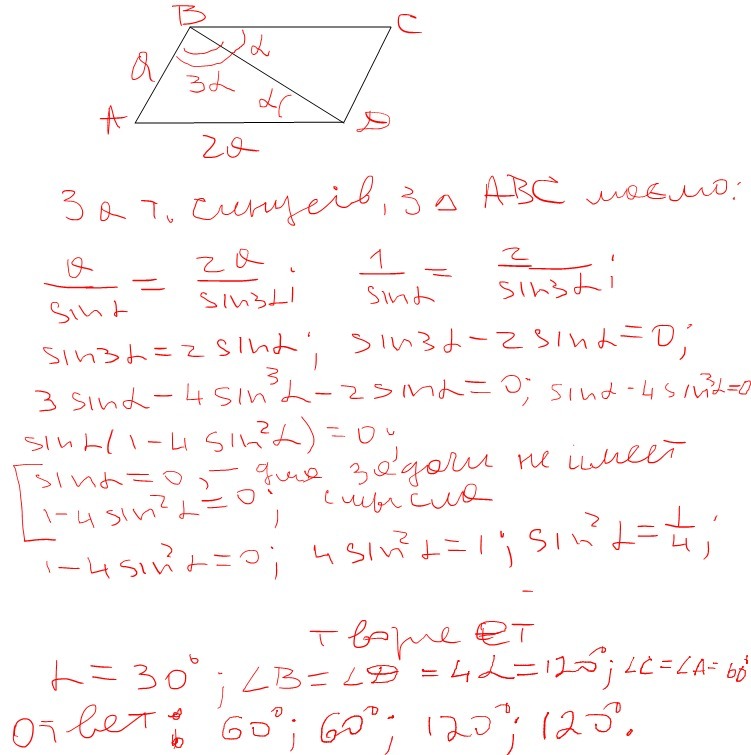 B C
a α
3α
A α D
2a
За т. синусів, з △ ABC маємо:
a/sinα = 2a/sin3α; 1/sinα = 2/sin3α;
sin3α = 2 sinα; sin3α - 2 sinα = 0;
3 sinα - 4 sin³α - 2 sinα = 0; sinα - 4 sin³α = 0
sinα(1 - 4 sin²α) = 0;
[ sinα = 0, - для задачи не имеет
1 - 4 sin²α = 0; смысла
1 - 4 sin²α = 0; 4 sin²α = 1; sin²α = 1/4;
α = 30°; ∠B = ∠D = 4α = 120°; ∠C = ∠A = 60°
Ответ: 60°; 60°; 120°; 120°.